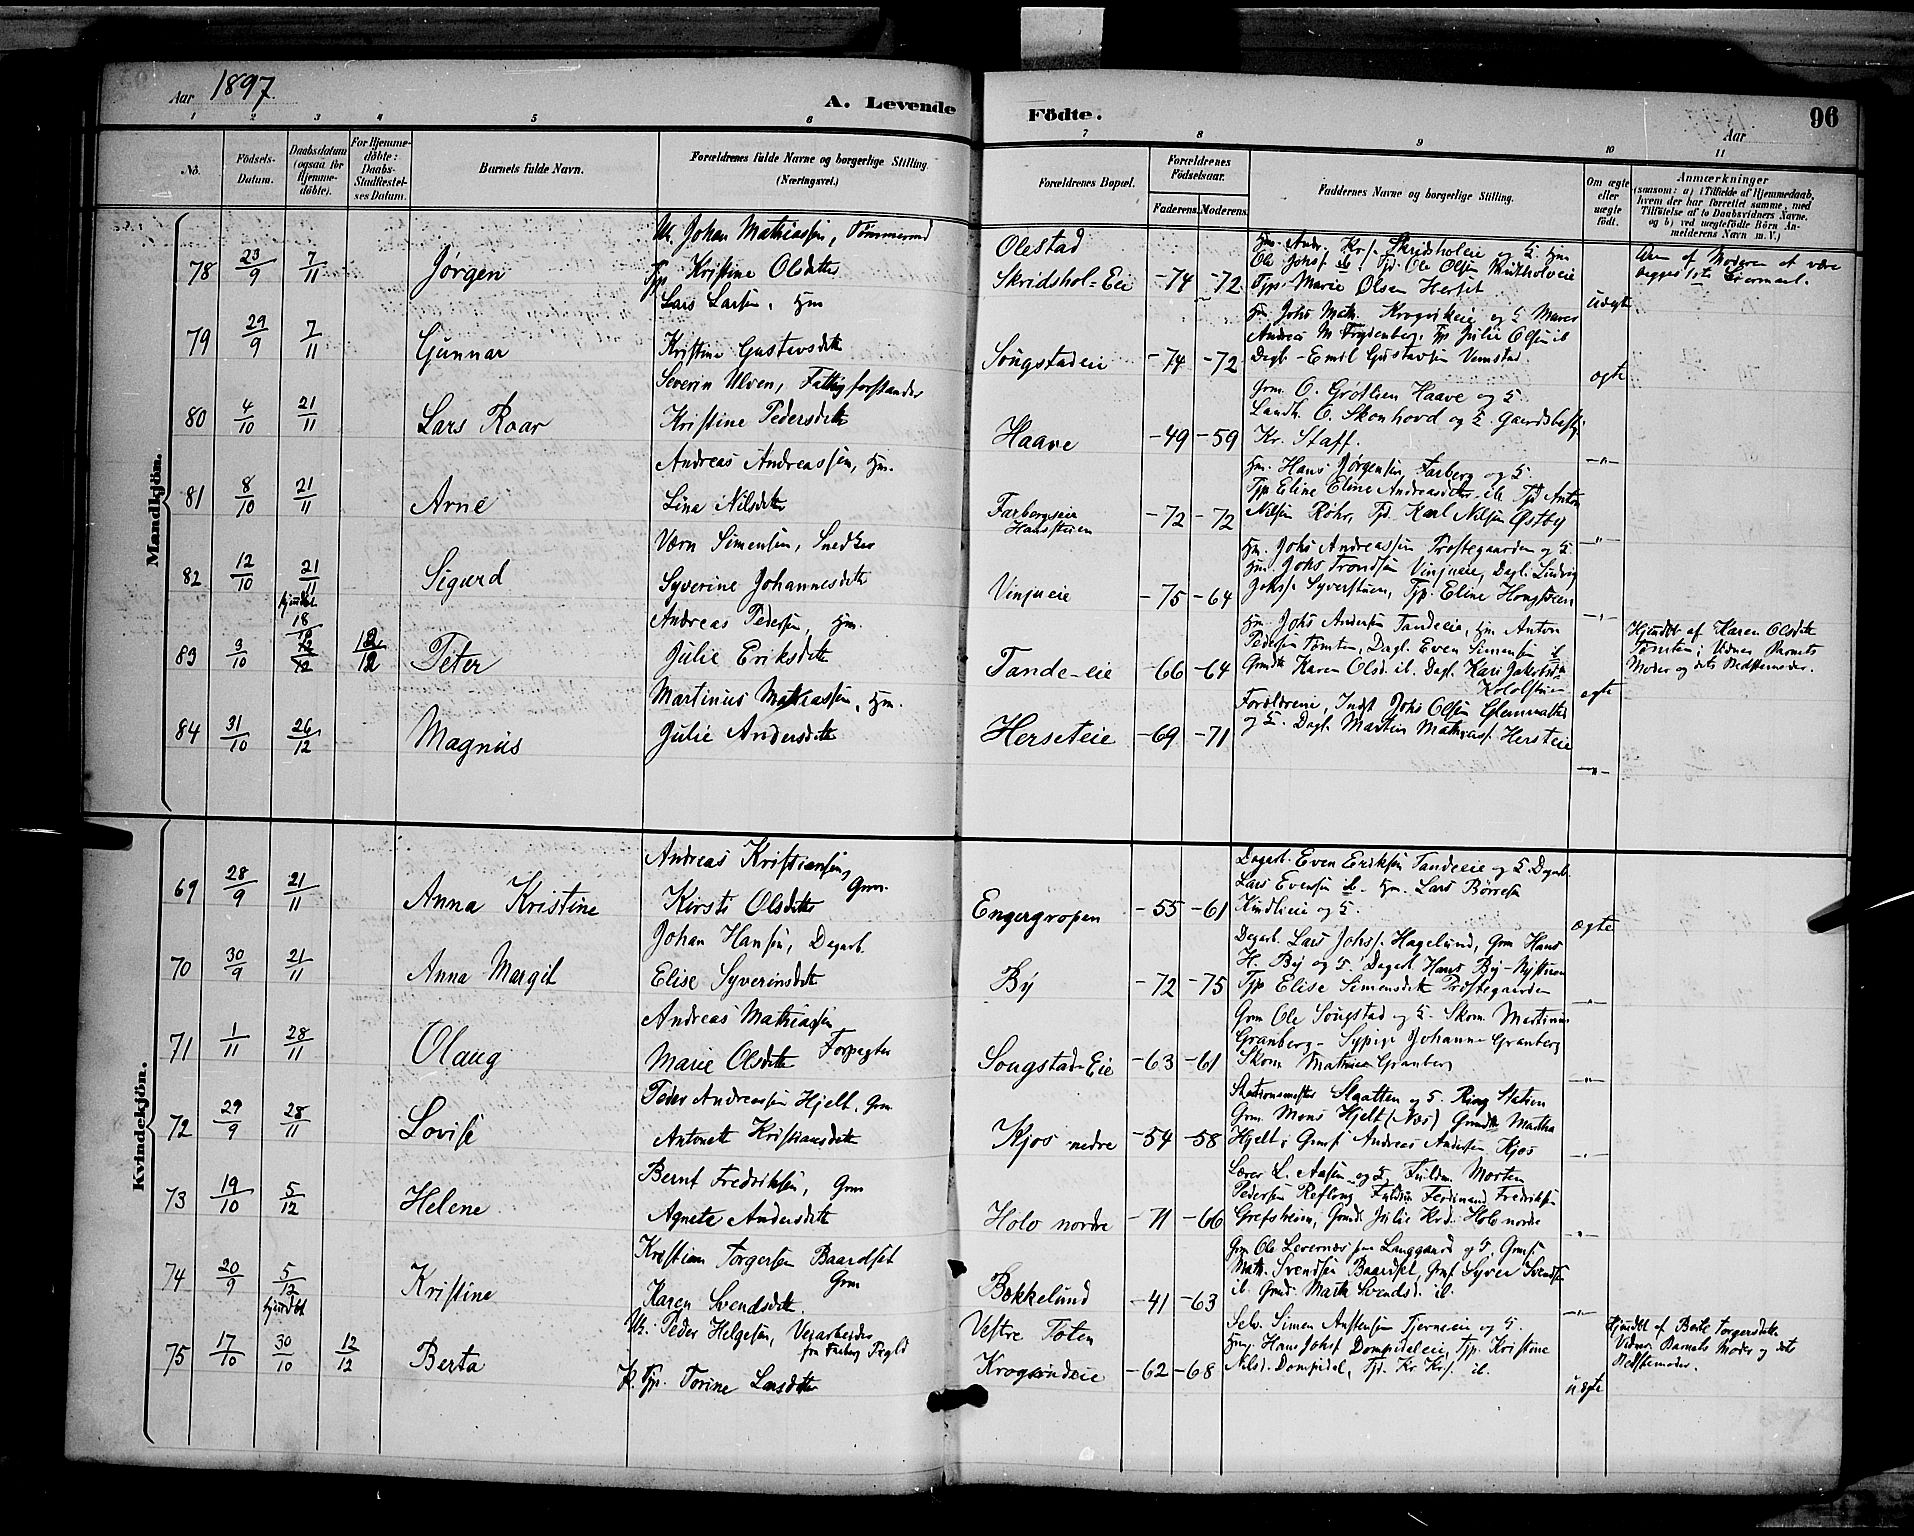 Aar 1897.
A. Levende Födte.
96
Aar
1 2 3 4 5 6 7 8 9 10 11
No.
Födsels-Datum.
Daabsdatum (ogsaa for Hjemme-döbte).
For Hjemme-döbte: Daabs-Stadfæstel-ses Datum.
Barnets fulde Navn.
Forældrenes fulde Navne og borgerlige Stilling. (Næringsvei.)
Forældrenes Bopæl.
Forældrenes Födselsaar.
Faderens. Moderens.
Faddernes Navne og borgerlige Stilling.
Om ægte eller uægte födt.
Anmærkninger
(saasom: a) i Tilfælde af Hjemmedaab, hvem der har forrettet samme, med Tilföielse af to Daabsvidners Navne, og b) ved uægtefödte Börn An-melderens Navn m. V.)
Mandkjön.
78 23/9 7/11 Jørgen
Uk. Johan Mathiassen, Tømmermd
Tjp. Kristine Olsdatter
Olestad
Skridshol-Eie -74 -72
Tjp. Marie Olsen Herset
uægte
79 29/9 7/11 Gunnar
Lars Larsen, Hm
Kristine Gustavsdtt
Songstadeie -74 -72
Andreas M Frydenberg, Tjp Julie Olsen ib
Dagl. Emil Gustavsen Vemstad.
ægte
80 4/10 21/11 Lars Roar
Severin Ulven, Fattigforstander
Kristine Pedersdtt
Haave -49 -59
Grm. O. Grøtlien Haave og H.
Landh. O. Skonhovd og H. Gaardsbesty.
Kr. Staff.
-"-
81 8/10 21/11 Arne
Andreas Andreassen, Hm.
Lina Nilsdatter
Farbergseie
-72 -72
Hm. Hans Jørgensen, Farberg og H.
Tjp. Eline Andreasdtr. ib Tjd Anton
Nilsen Røhr, Tjd. Karl Nilsen Østby
-"-
82 12/10 21/11 Sigurd
Værn Simensen, Snedker
Syverine Johannesdtt
Vinjueie -75 -64
Hm. Johs Andreassen Prestegaarden og H.
Hm. Johs Trondsen Vinjueie, Dagl. Ludvig
-"-
83 3/10 hjmdbt 18/10 12/12 12/12 Peter
Andreas Pedersen, Hm.
Julie Eriksdtt
Tande-eie -66 -64
Hm. Johs Andersen Tandeeie, Hm Anton
Pedersen Tomten, Dagl. Even Simensen ib
Gmdk Karen Olsd. ib. Dagl. Kari Jakobsd.
ægte
Hjmdbt af Karen Olsdtr
Tomten; Vidner Barnets
Moder og dets Bedstemoder.
84 31/10 26/12 Magnus
Martinius Mathiassen, Hm.
Julie Andersdtt
Herseteie -69 -71
Forældrene, Indst Johs Olsen
og H. Dagl. Martin Mathias. Herseteie
-"-
Kvindekjön.
69 28/9 21/11 Anna Kristine
Andreas Kristiansen, Grm.
Kersti Olsdatter
Engergropen -55 -61
Dagarb. Even Eriksen Tandeeie og H. Dagarb.
Lars Evensen ib. Hm. Lars Børresen
Kindlieie og H.
ægte
70 30/9 21/11 Anna Margit
Johan Hansen, Dagarb.
Elise Syverinsdtt
By -72 -75
Dagarb. Lars Johs. Hagelund, Grm Hans
H. By og H. Dagarb. Hans By-Nystuen
Tjp Elise Simensdtt Prestegaarden
-"-
71 1/11 28/11 Olaug
Andreas Mathiassen
Marie Olsdtt Forpagter
Songstad-Eie -63 -61
Grm Ole Songstad og H. Skom. Martinius
Granberg - Sypige Johanne Granberg
Skom. Mathias Granberg
-"-
72 29/9 28/11 Lovise
Peder Andreassen Hjelt, Grm
Antonette Kristiansdtt
Kjos nedre -54 -58
Stationsmester Slaatten og H. Ring Station
Grm. Mons Hjelt (Nes) Gmdk Martha
Hjelt; Gmsf. Andreas Andersen Kjos
-"-
73 19/10 5/12 Helene
Bernt Fredriksen, Grm
Agnete Andersdtt
Holo nordre -71 -66
Lærer L. Aasen og H. Fuldm. Morten
Pedersen Reflong, Fuldm Ferdinand Fredriksen
Grefsheim, Gmd. Julie Krd. Holo nordre
-"-
74 20/9 5/12 Kristine
Kristian Torgersen Baardset
Grm
Karen Svendsdtt.
Bekkelund -41 -63
Grm Ole Levernæs paa Langgaard og H. Gmsf
Math. Svendsen Baardset, Gmsf Syver Svendsen
ib. Gmd. Marth Svendsd. ib.
-"-
75 17/10 hjmdbt 30/10 12/12 Berta
Uk. Peder Helgesen, Veiarbeider
Tjp. Torine Larsdatter
Vestre Toten
Krogsrudeie -62 -68
Selv. Simen Austensen Tjerneeie og H.
Hmf. Hans Johs. Dompidaleie, Tjp. Kristine
Nilsd. Dompidal, Tjd. Kr Kr. ib.
uægte
Hjmdbt af Berte Torgersdtr
Vidner Barnets Moder og dets
Bedstemoder.